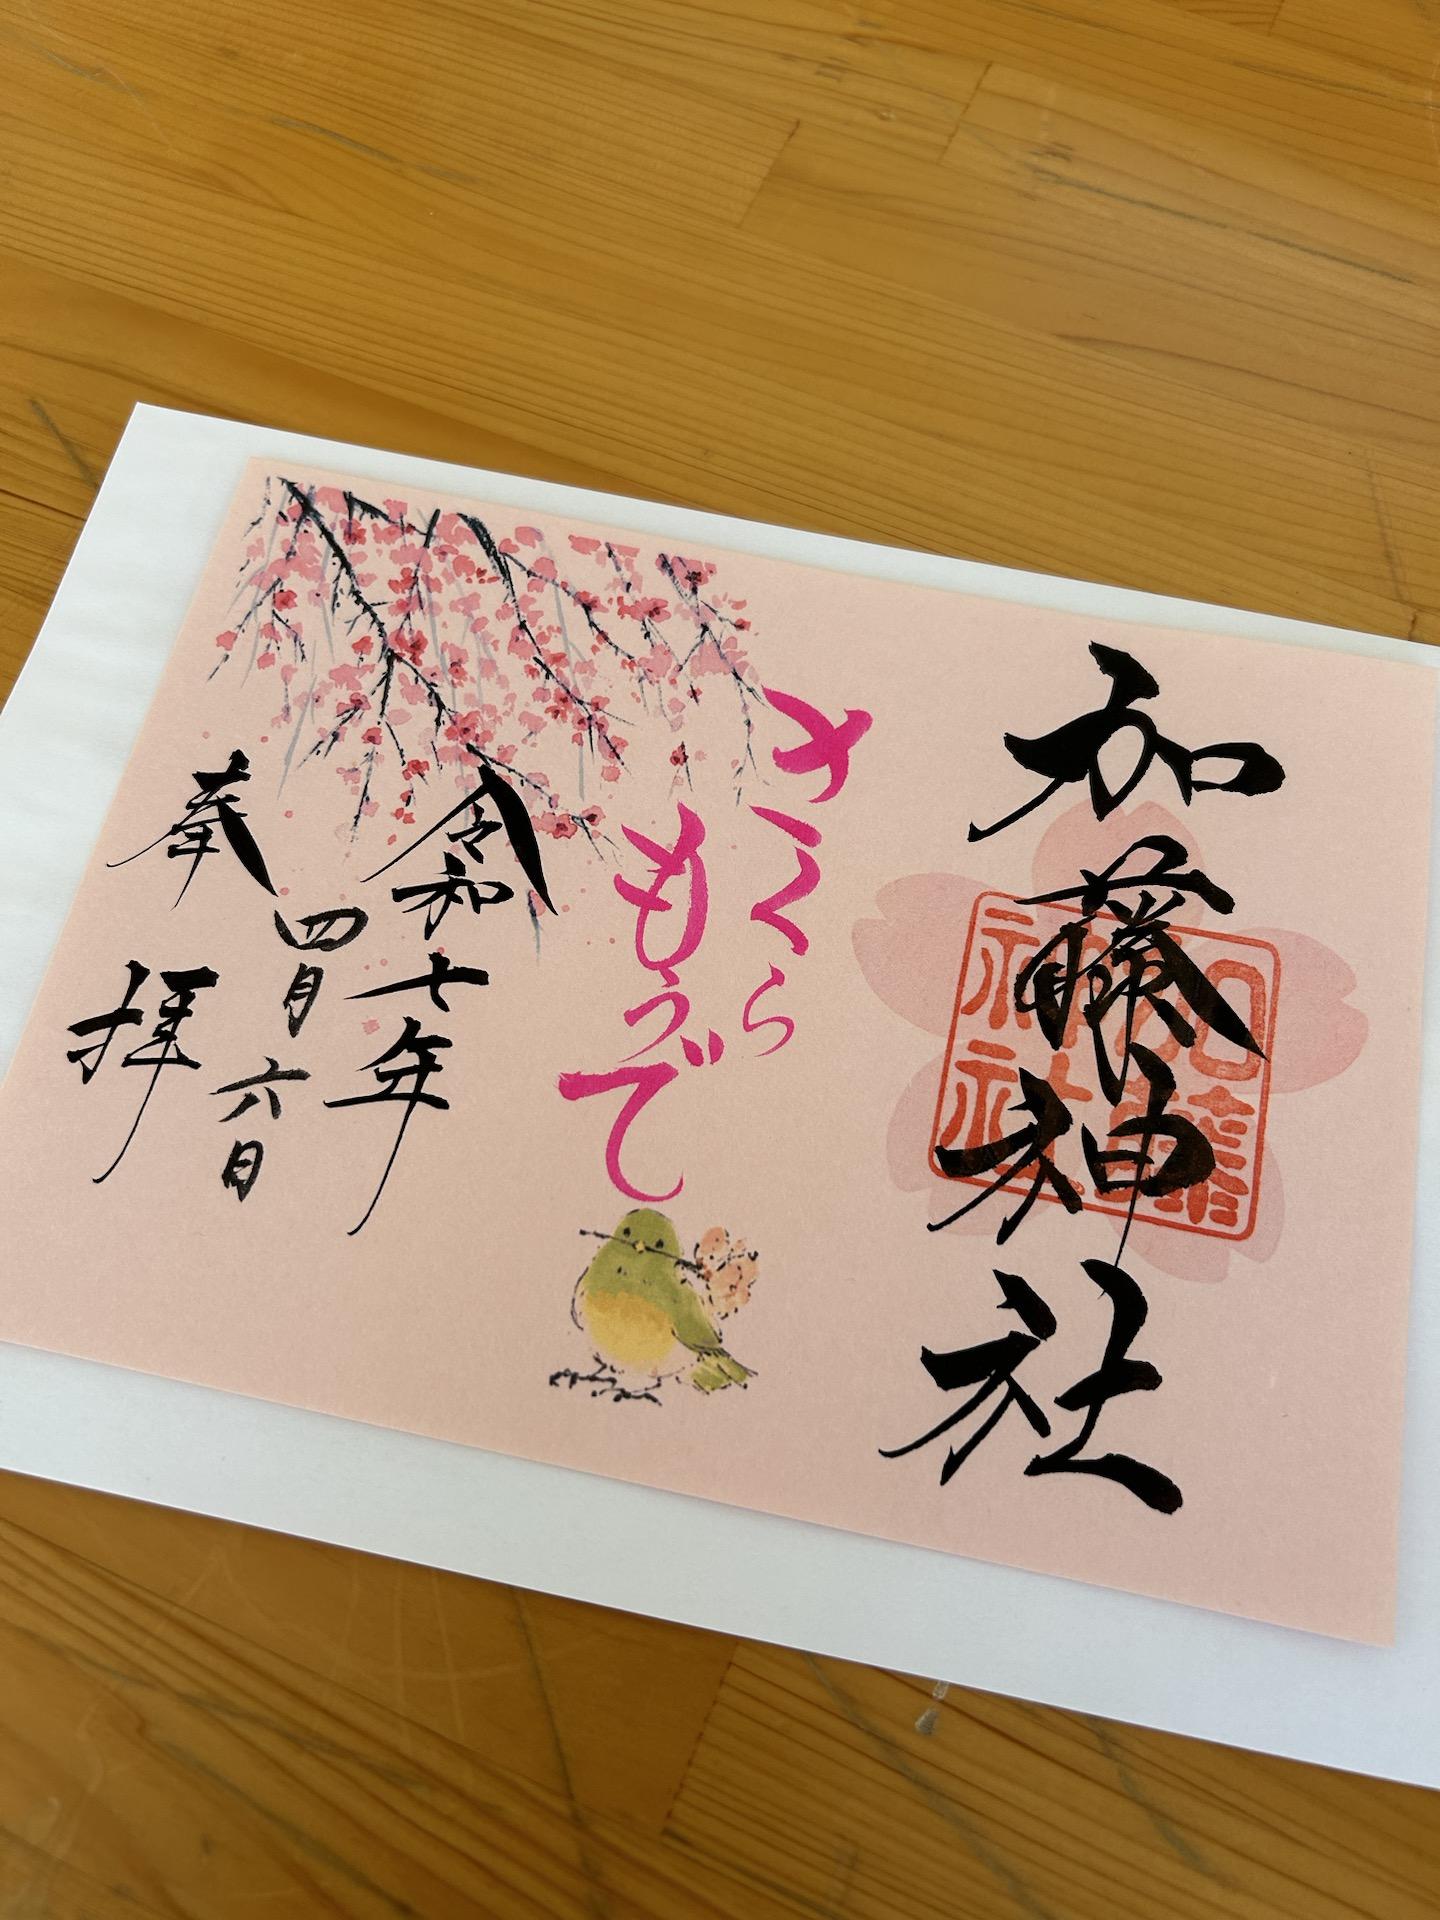 加藤神社
加藤
神社
さくら
もうで
令和七年
四月六日
奉拝